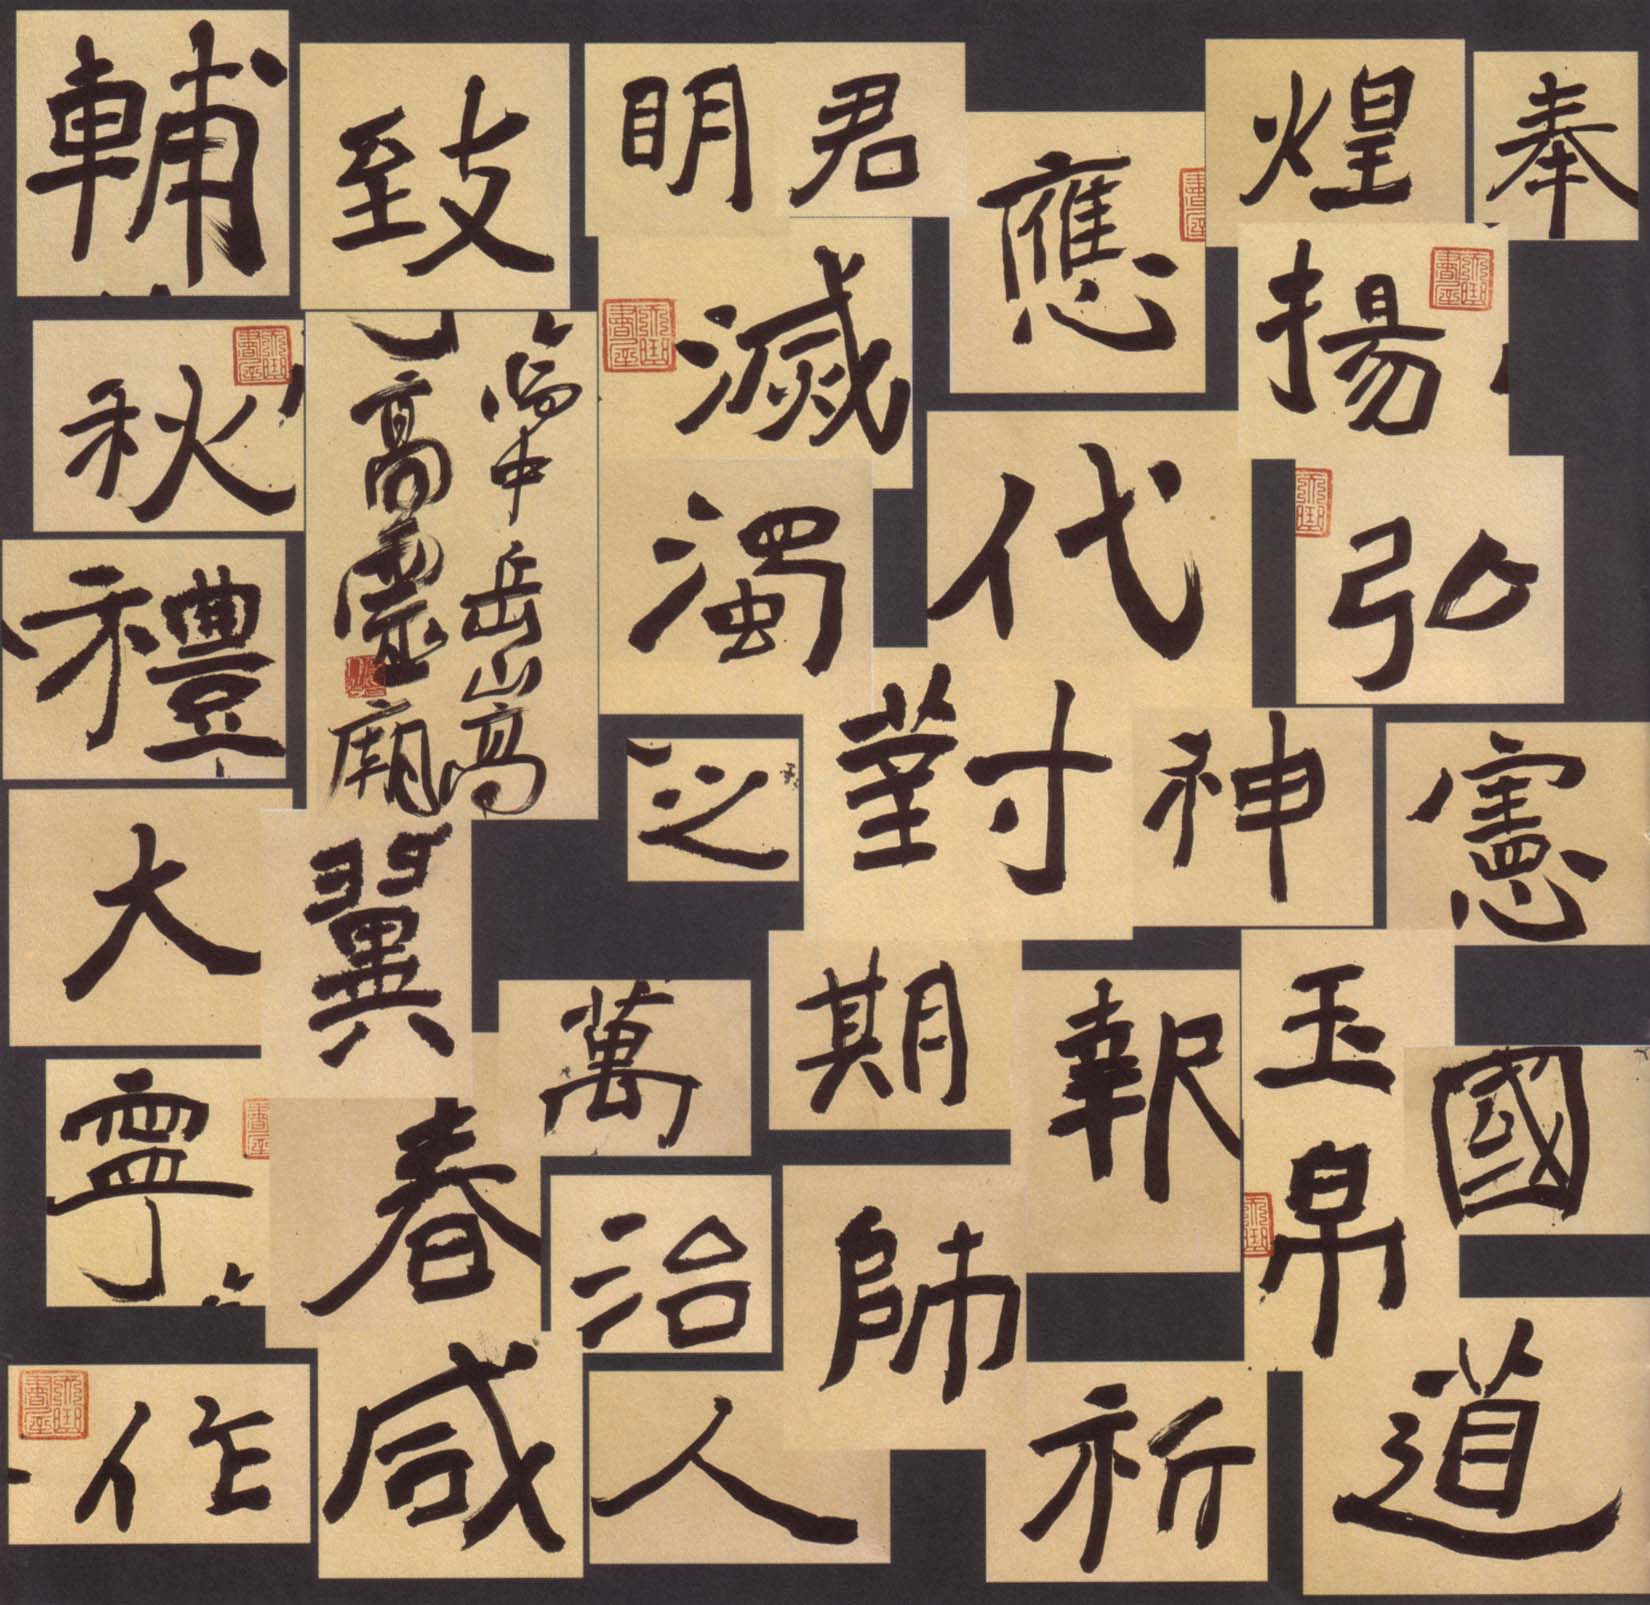 奉
煌
揚
弘
憲
國
玉帛
道
應
代
對
神
報
祈
君
明
滅
濁
之
期
師
萬
治
人
致
中岳嵩高
嵩高靈廟
翼
春
咸
輔
秋
禮
大
寧
作